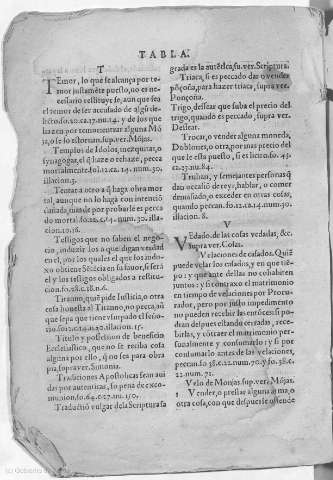 TABLA.
T
TEmor, lo que se alcança por te-
mor justamẽte puesto, no es ne-
cessario restituyrse, aun que sea
el temor de ser accusado de algũ cri-
y de los que
ja, o se lo estoruan. sup. ver. Mõjas.
Templos de Idolos, mezquitas, o
synagogas, el q̃ haze o rehaze, pecca
mortalmente. fo. 12. ca. 14. num. 30.
illation. 4.
Tentar a otro a q̃ haga obra mor
tal, aunque no lo haga con intenciõ
dañada, mas de por probarle es pecca
do mortal. fo. 22. c. 14. num. 30. illa-
cion. 10. 18.
Testigos que no saben el nego-
cio, induzir los a que digan verdad
en el, por los quales el que los indu-
xo obtiene Sẽtẽcia en su fauor, si sera
el y los testigos obligados a restitu-
cion. fo. 58. c. 18. n. 6.
Titano, quiẽ pide Iusticia, o otra
cosa honesta al Titanno, no pecca, aũ
que sepa que tiene vsurpado el seño-
illation. 15.
Titulo y possession de beneficio
Ecclesiastico, que no se reciba cosa
alguna por ello, q̃ no sea para obra
pia, supra ver. Simonia.
Tradiciones Apostolicas sean aui
das por autenticas, so pena de exco-
munion. fo. 64. c. 27. nu. 150.
Traductiõ vulgar de la Scriptura sa
grada es la autẽtica, su. ver. Scriptura.
Triaca, si es peccado dar o vender
põçoña, para hazer triaca, supra ver.
Ponçoña.
Trigo, dessear que suba el precio del
trigo, quando es peccado, supra ver.
Dessear.
Trocar, o vender alguna moneda,
Doblones, o otra, por mas precio del
que le esta puesto, si es licito. fo. 45.
c. 17. nu. 84.
Truhan, y semejantes personas q̃
dan occasiõ de reyr, hablar, o comer
demasiado, o exceder en otras cosas,
quando peccan. fo. 12. c. 14. num. 30.
illacion. 8.
V
VEdado. de las cosas vedadas, &c.
Supra ver. Cosas.
Velaciones de casados. Quiẽ
puede velar los casados, y en que tiẽ-
po: y que antes dellas no cohabiten
juntos: y si contraxo el matrimonio
en tiempo de velaciones por Procu-
rador, pero por justo impedimento
no pueden recebir las entõces: si po-
dran despues estando cerradas, rece-
birlas, y ratear el matrimonio per-
sonalmente y consumarlo: y si por
consumarlo antes de las velaciones,
peccan. fo. 38. c. 22. num. 70. y fo. 38. c.
22. num. 71.
Velo de Monjas sup. ver. Mõjas.
Vender, o prestar alguna arma, o
otra cosa, con que despues se offende